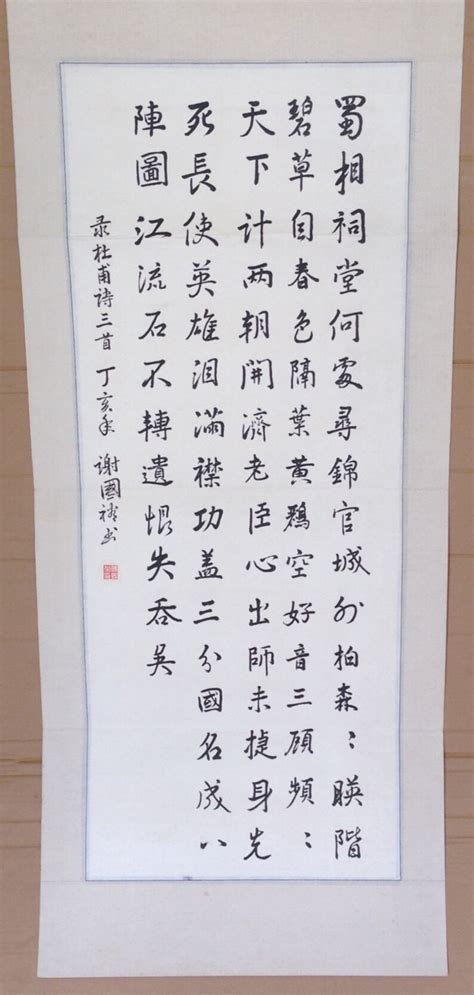 蜀相祠堂何處尋錦官城外柏森〻暎階
碧草自春色隔葉黃鸝空好音三顧頻〻
天下計两朝開濟老臣心出師未捷身先
死長使英雄泪滿襟功盖三分國名成八
陣圖江流石不轉遺恨失吞吳
录杜甫詩三首 丁亥 謝國 书